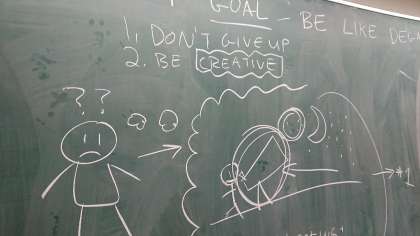 GOAL - BE LIKE
1. DON'T GIVE UP
2. BE CREATIVE
? ?